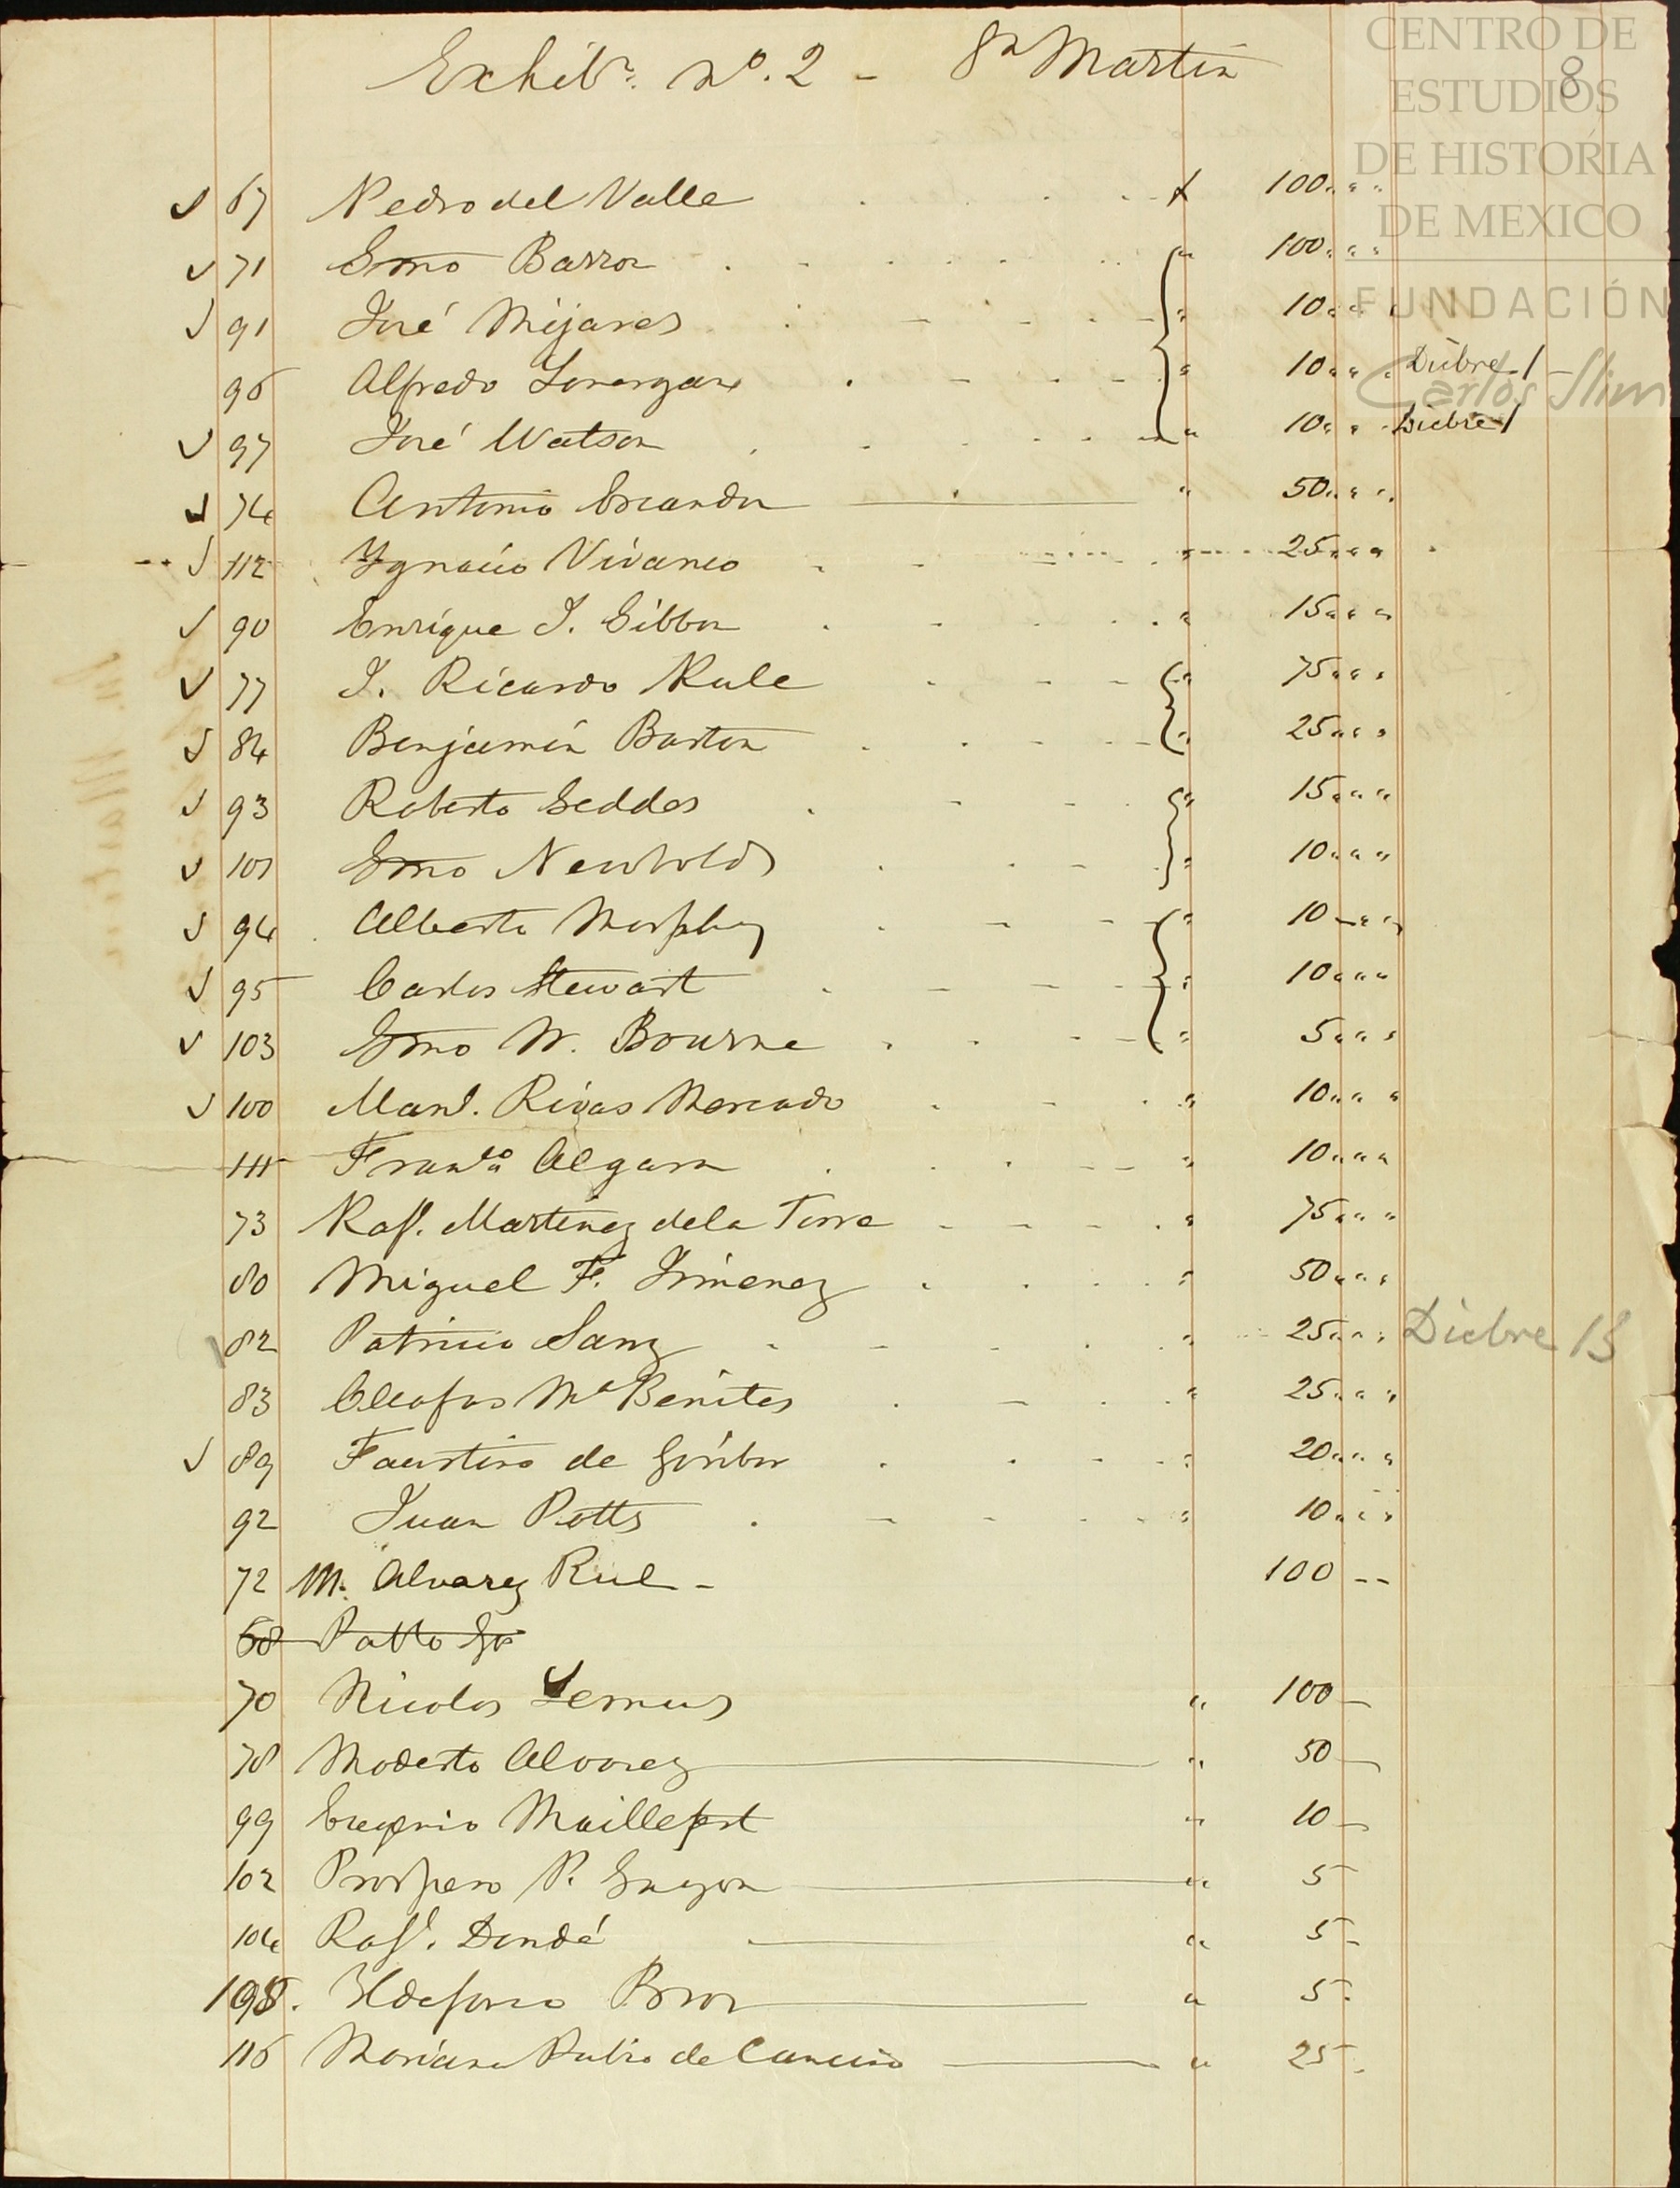 Exhib.n No. 2 - Sn Martin
8
CENTRO DE
ESTUDIOS
DE HISTORIA
DE MEXICO
FUNDACIÓN
Carlos Slim
67 Pedro del Valle $ 100 " "
71 Gmo Barron " 100 " "
91 José Mijares " 10 " "
96 Alfredo Lonergan " 10 " " Dicbre 1
97 José Watson " 10 " " Dicbre 1
74 Antonio Escandon " 50 " "
112 Ygnacio Vivanco " 25 " "
90 Enrique J. Gibbon " 15 " "
77 J. Ricardo Rule " 75 " "
84 Benjamin Barton " 25 " "
93 Roberto Geddes " 15 " "
101 Gmo Newbold " 10 " "
94 Alberto Morphy " 10 " "
95 Carlos Stewart " 10 " "
103 Gmo W. Bourne " 5 " "
100 Manl. Rivas Mercado " 10 " "
111 Franco Algara " 10 " "
73 Raf. Martinez de la Torre " 75 " "
80 Miguel F. Jimenez " 50 " "
82 Patricio Sanz " 25 " " Dicbre 13
83 Cleofas Ma Benites " 25 " "
89 Faustino de Goribar " 20 " "
92 Juan Potts " 10 " "
72 M. Alvarez Rul - 100 --
68 Patto
70 Nicolas Lemus " 100 -
78 Modesto Alvarez " 50 -
99 Eugenio Maillefert " 10 -
102 Prospero P. " 5
104 Rafl. Dondé " 5 -
Ildefonso " 5 -
116 Mariana Rubio de Cancino " 25 -